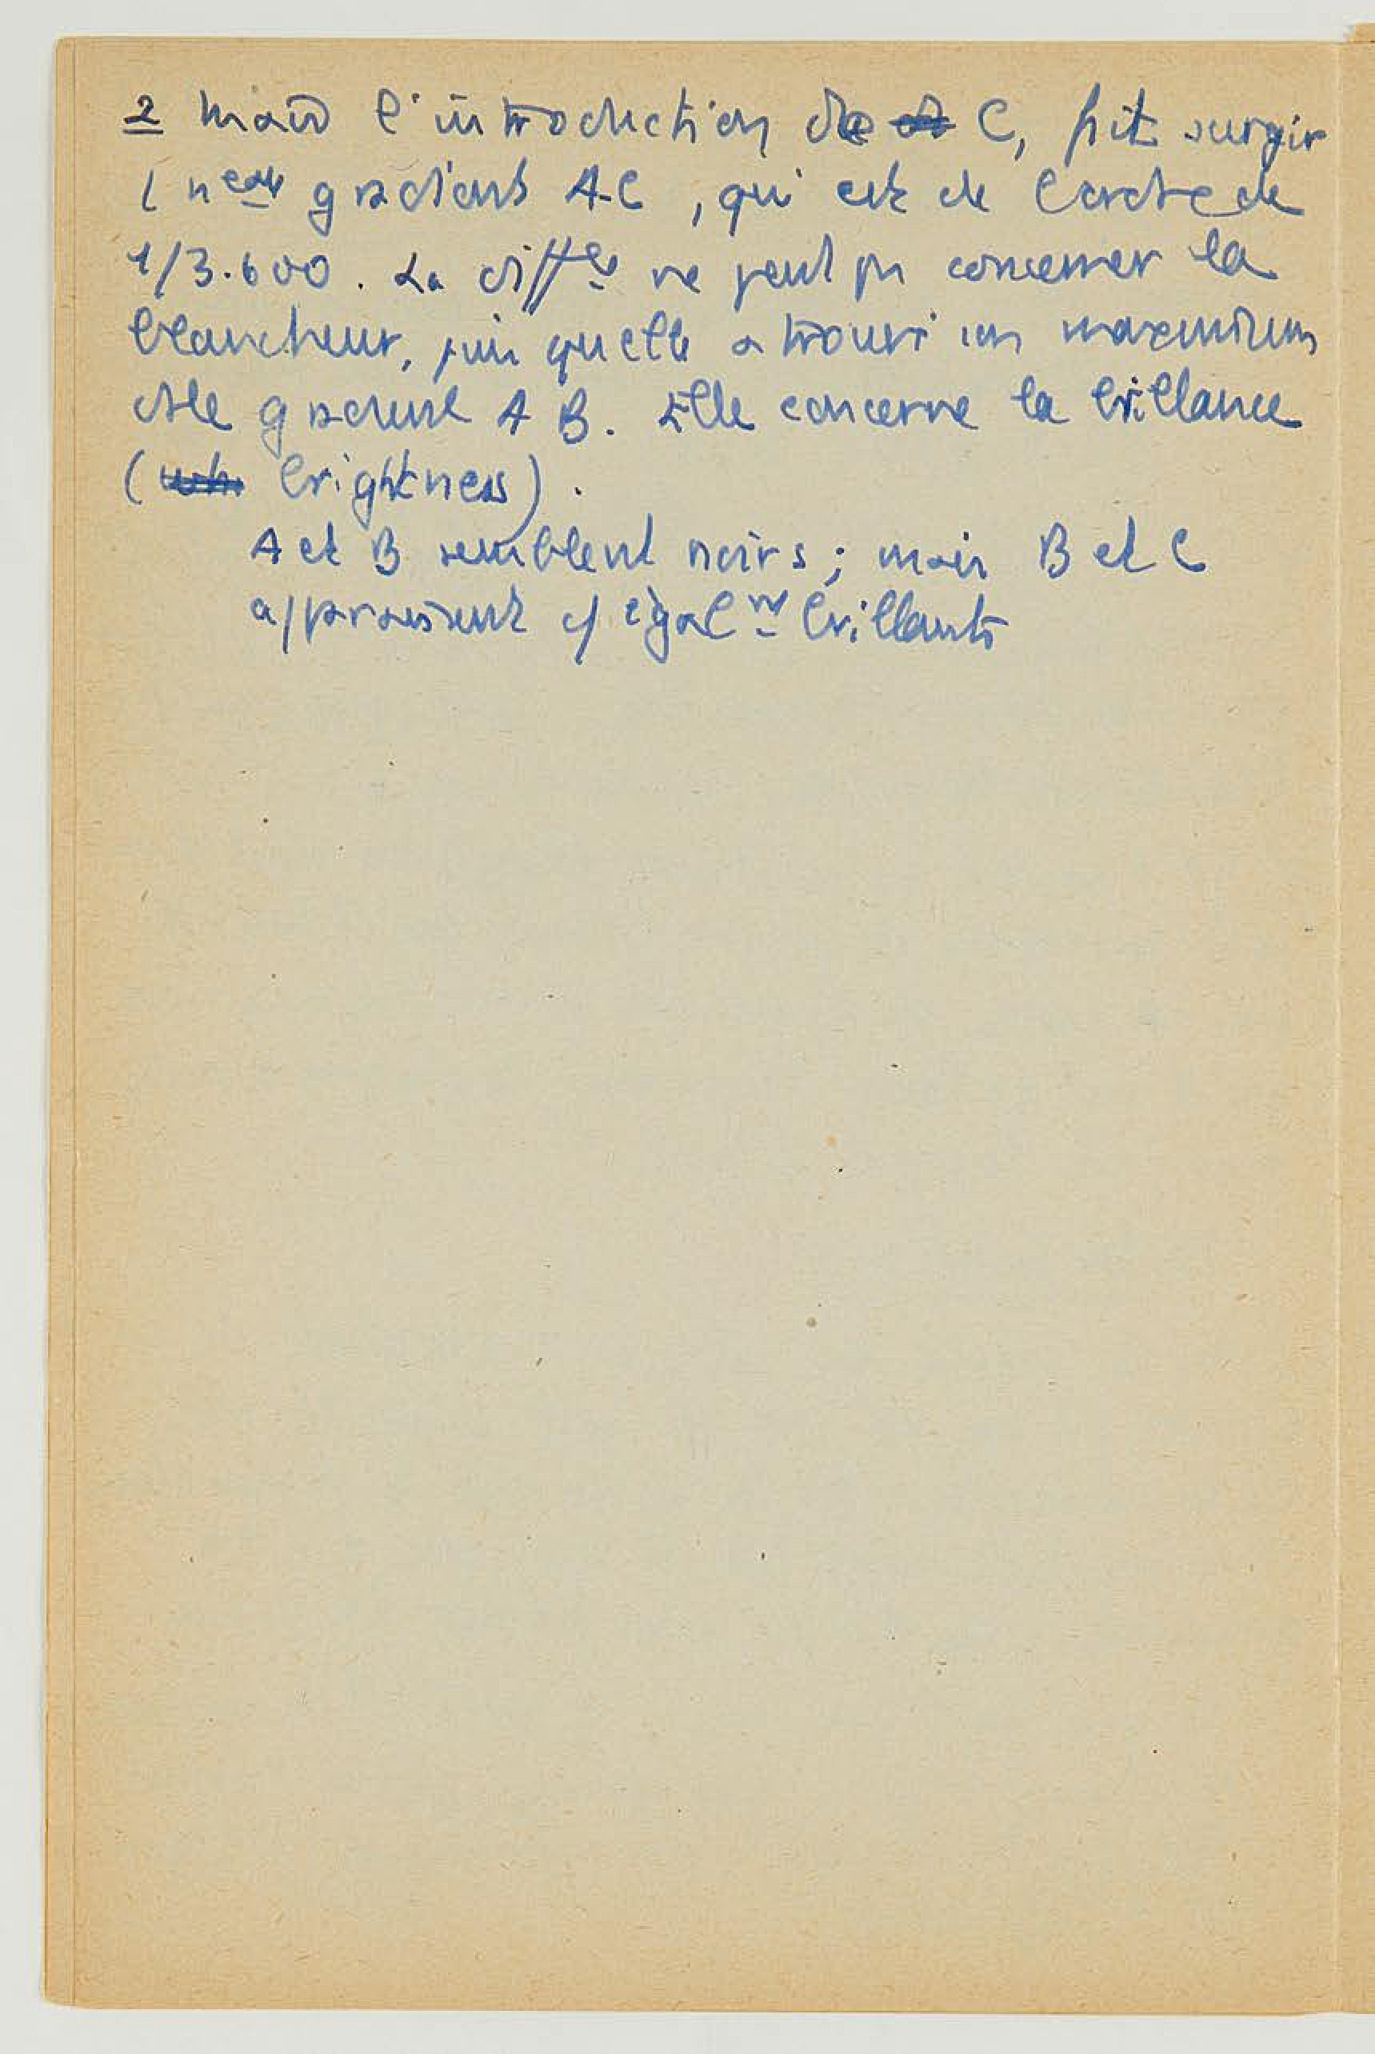 2 mais l'introduction de C, fait surgir
1 neau gradient A-C, qui est de l'ordre de
1/3.600. La diffce ne peut pas concerner la
blancheur, puisqu'elle a trouvé son maximum
ds le gradient A B. Elle concerne la brillance
(brightness).
A et B semblent noirs ; mais B et C
apparaissent c/ égalnt brillants